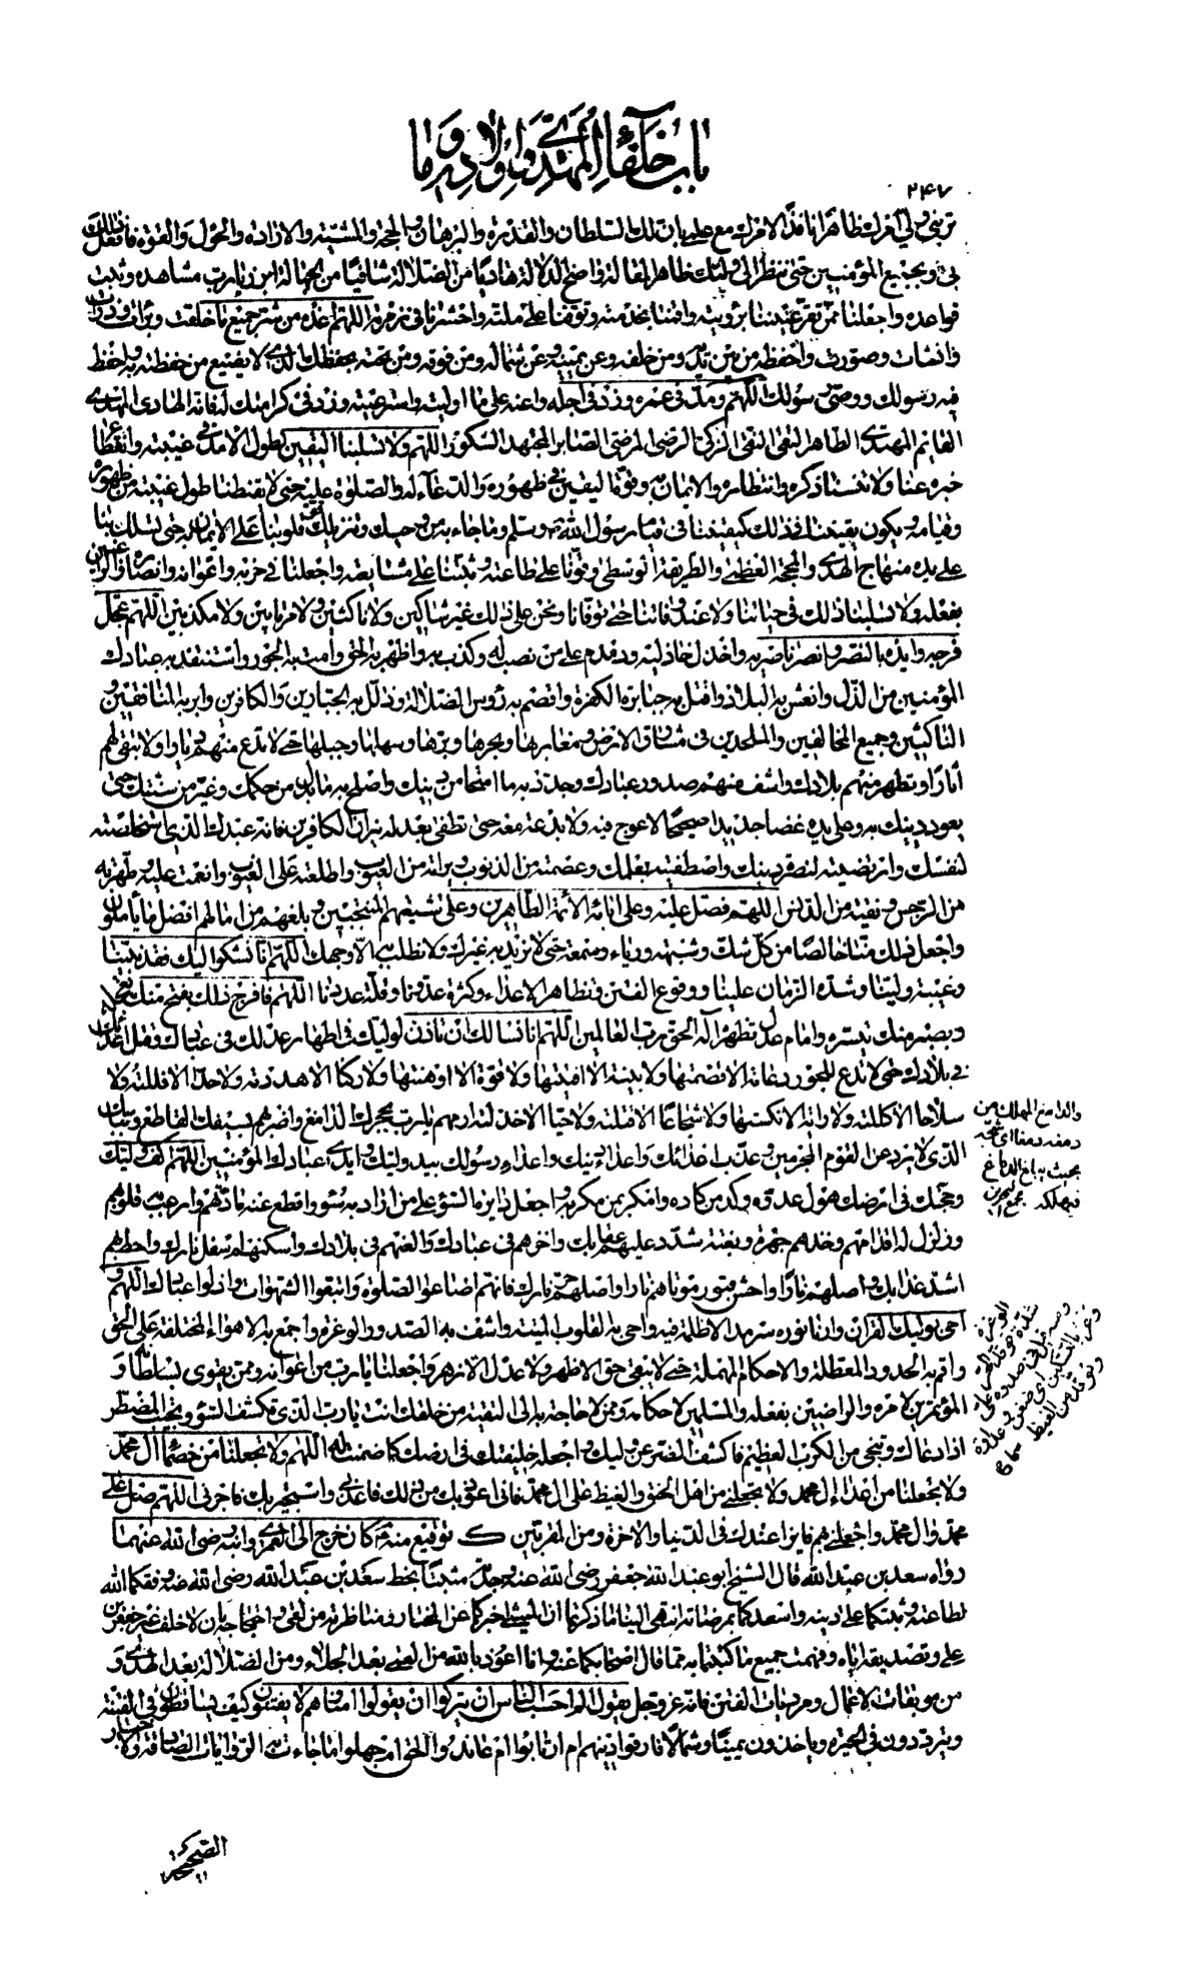 باب خلفاء المهدي واولاده وما
۲۴۷
تريني ولي امرك ظاهرا نافذا لامرك مع علمي بان لك السلطان والقدرة والبرهان والحجة والمشية والارادة والحول والقوة فافعل ذلك
بي وبجميع المؤمنين حتى ننظر الى وليك ظاهر المقالة واضح الدلالة هاديا من الضلالة شافيا من الجهالة ابرز يا رب مشاهده وثبت
قواعده واجعلنا ممن تقر عيننا برؤيته واقمنا بخدمته وتوفنا على ملته واحشرنا في زمرته اللهم اعذه من شر جميع ما خلقت وبرات وذرات
وانشات وصورت واحفظه من بين يديه ومن خلفه وعن يمينه وعن شماله ومن فوقه ومن تحته بحفظك الذي لا يضيع من حفظته به واحفظ
فيه رسولك ووصي رسولك اللهم ومد في عمره وزد في اجله واعنه على ما اوليته واسترعيته وزد في كرامتك له فانه الهادي المهتدي
القائم المهدي الطاهر التقي النقي الزكي الرضي المرضي الصابر المجتهد الشكور اللهم ولا تسلبنا اليقين لطول الامد في غيبته وانقطاع
خبره عنا ولا تنسنا ذكره وانتظاره والايمان به وقوة اليقين في ظهوره والدعاء له والصلوة عليه حتى لا يقنطنا طول غيبته من ظهوره
وقيامه ويكون يقيننا في ذلك كيقيننا في قيام رسول الله ص وسلم وما جاء به من وحيك وتنزيلك قو قلوبنا على الايمان به حتى تسلك بنا
على يده منهاج الهدى والمحجة العظمى والطريقة الوسطى وقونا على طاعته وثبتنا على مشايعته واجعلنا في حزبه واعوانه وانصاره والراضين
بفعله ولا تسلبنا ذلك في حياتنا ولا عند وفاتنا حتى توفانا ونحن على ذلك غير شاكين ولا ناكثين ولا مرتابين ولا مكذبين اللهم عجل
فرجه وايده بالنصر وانصر ناصريه واخذل خاذليه ودمدم على من نصب له وكذب به واظهر به الحق وامت به الجور واستنقذ به عبادك
المؤمنين من الذل وانعش به البلاد واقتل به جبابرة الكفرة واقصم به رؤس الضلالة وذلل به الجبارين والكافرين وابر به المنافقين و
الناكثين وجميع المخالفين والملحدين في مشارق الارض ومغاربها وبحرها وبرها وسهلها وجبلها حتى لا تدع منهم ديارا ولا تبقي لهم
اثارا وتطهر منهم بلادك واشف منهم صدور عبادك وجدد به ما امتحا من دينك واصلح به ما بدل من حكمك وغير من سنتك حتى
يعود دينك به وعلى يده غضا جديدا صحيحا لا عوج فيه ولا بدعة معه حتى تطفي بعدله نيران الكافرين فانه عبدك الذي استخلصته
لنفسك وارتضيته لنصرة دينك واصطفيته بعلمك وعصمته من الذنوب وبراته من العيوب واطلعته على الغيوب وانعمت عليه وطهرته
من الرجس ونقيته من الدنس اللهم فصل عليه وعلى ابائه الائمة الطاهرين وعلى شيعتهم المنتجبين وبلغهم من امالهم افضل ما ياملون
واجعل ذلك منا خالصا من كل شك وشبهة ورياء وسمعة حتى لا نريد به غيرك ولا نطلب به الا وجهك اللهم انا نشكوا اليك فقد نبينا
وغيبة ولينا وشدة الزمان علينا ووقوع الفتن وتظاهر الاعداء وكثرة عدونا وقلة عددنا اللهم فافرج ذلك بفتح منك تعجله
وبصبر منك تيسره وامام عدل تظهره اله الحق رب العالمين اللهم انا نسالك ان تاذن لوليك في اظهار عدلك في عبادك وقتل اعدائك
في بلادك حتى لا تدع للجور دعامة الا قصمتها ولا بنية الا افنيتها ولا قوة الا اوهنتها ولا ركنا الا هددته ولا حدا الا فللته ولا
سلاحا الا كللته ولا راية الا نكستها ولا شجاعا الا قتلته ولا حيا الا خذلته ارمهم يا رب بحجرك الدامغ واضربهم بسيفك القاطع وبباسك
الذي لا يرد عن القوم المجرمين وعذب اعدائك واعداء دينك واعداء رسولك بيد وليك وايدي عبادك المؤمنين اللهم اكف وليك
وحجتك في ارضك هول عدوه وكد من كاده وامكر بمن مكر به واجعل دائرة السوء على من اراد به سوء واقطع عنه مادتهم وارعب به قلوبهم
وزلزل له اقدامهم وخذهم جهرة وبغتة شدد عليهم عقابك واخزهم في عبادك والعنهم في بلادك واسكنهم اسفل نارك واحط بهم
اشد عذابك واصلهم نارا واحش قبور موتاهم نارا واصلهم حر نارك فانهم اضاعوا الصلوة واتبعوا الشهوات واذلوا عبادك اللهم و
احي بوليك القران وارنا نوره سرمدا لا ظلمة فيه واحي به القلوب الميتة واشف به الصدور الوغرة واجمع به الاهواء المختلفة على الحق
واقم به الحدود المعطلة والاحكام المهملة حتى لا يبقى حق الا ظهر ولا عدل الا زهر واجعلنا يا رب من اعوانه وممن يقوي سلطانه و
المؤتمرين لامره والراضين بفعله والمسلمين لاحكامه وممن لا حاجة به الى التقية من خلقك انت يا رب الذي تكشف السوء وتجيب المضطر
اذا دعاك وتنجي من الكرب العظيم فاكشف الضر عن وليك واجعله خليفتك في ارضك كما ضمنت له اللهم ولا تجعلنا من خصماء ال محمد
ولا تجعلنا من اعداء ال محمد ولا تجعلني من اهل الحنق والغيظ على ال محمد فاني اعوذ بك من ذلك فاعذني واستجير بك فاجرني اللهم صل على
محمد وال محمد واجعلني بهم فائزا عندك في الدنيا والاخرة ومن المقربين ك توقيع منه ع كان خرج الى العمري وابنه رضي الله عنهما
رواه سعد بن عبد الله قال الشيخ ابو عبد الله جعفر رضي الله عنه وجدته مثبتا بخط سعد بن عبد الله رضي الله عنه وفقكما الله
لطاعته وثبتكما على دينه واسعدكما بمرضاته انتهى الينا ما ذكرتما ان الميثمي اخبركما عن المختار ومناظرته من لقي واحتجاجه بان لا خلف غير جعفر بن
علي وتصديقه اياه وفهمت جميع ما كتبتما به مما قال اصحابكما عنه وانا اعوذ بالله من العمى بعد الجلاء ومن الضلالة بعد الهدى و
من موبقات الاعمال ومرديات الفتن فانه عز وجل يقول الم احسب الناس ان يتركوا ان يقولوا امنا وهم لا يفتنون كيف يتساقطون في الفتنة
ويترددون في الحيرة وياخذون يمينا وشمالا فارقوا دينهم ام ارتابوا ام عاندوا الحق ام جهلوا ما جاءت به الروايات الصادقة والاخبار
الصحيحة
والدامغ المهلك من
دمغه دمغا اي شجه
بحيث يبلغ الدماغ
فيهلكه مجمع البحرين
الوغرة
شدة توقد الحر